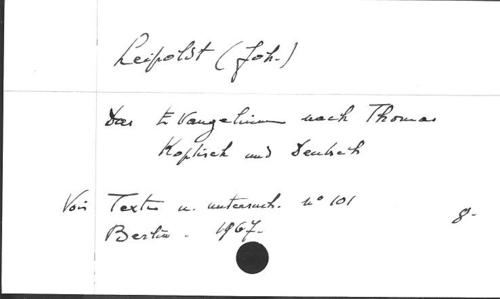 Leipoldt (Joh.)
Das Evangelium nach Thomas
Koptisch und Deutsch
Voir Texte u. untersuch. n° 101
Berlin - 1967.
8-